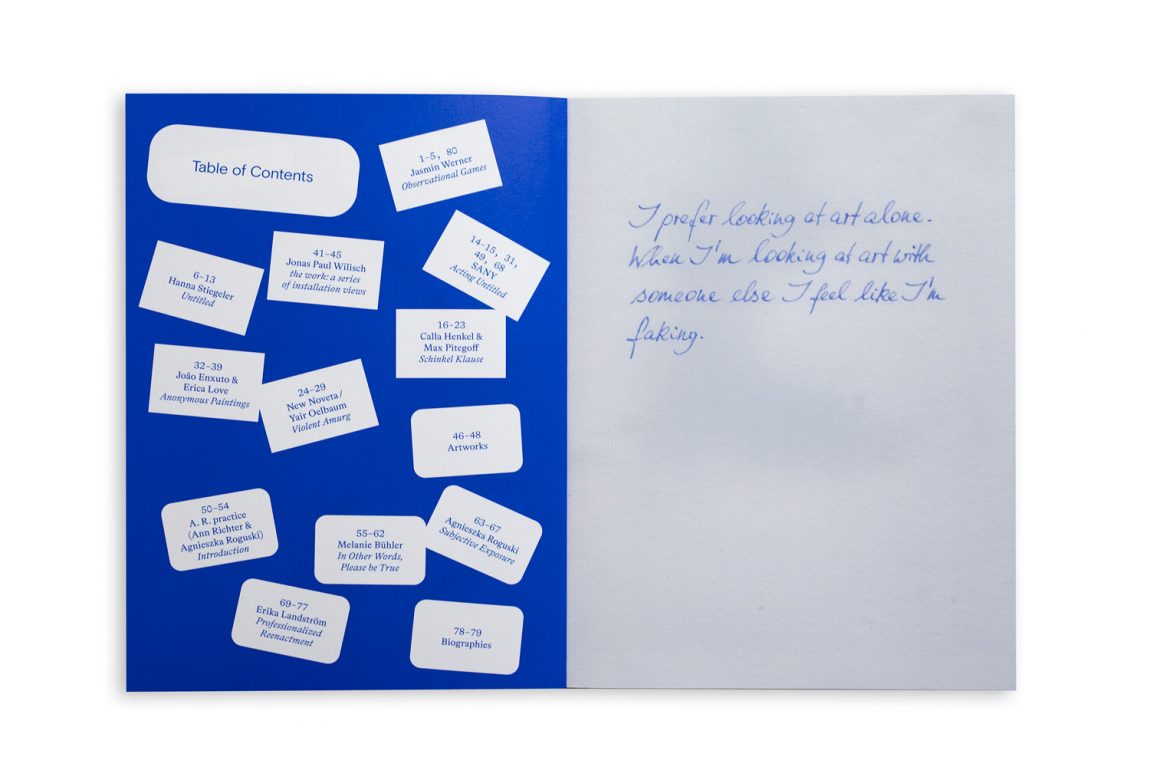 Table of Contents
1–5, 80
Jasmin Werner
Observational Games
6–13
Hanna Stiegeler
Untitled
41–45
Jonas Paul Wilisch
the work: a series
of installation views
14–15, 31,
49, 68
SANY
Acting Untitled
16–23
Calla Henkel &
Max Pitegoff
Schinkel Klause
32–39
João Enxuto &
Erica Love
Anonymous Paintings
24–29
New Noveta/
Yair Oelbaum
Violent Amurg
46–48
Artworks
50–54
A. R. practice
(Ann Richter &
Agnieszka Roguski)
Introduction
55–62
Melanie Bühler
In Other Words,
Please be True
63–67
Agnieszka Roguski
Subjective Exposure
69–77
Erika Landström
Professionalized
Reenactment
78–79
Biographies
I prefer looking at art alone.
When I'm looking at art with
someone else I feel like I'm
faking.